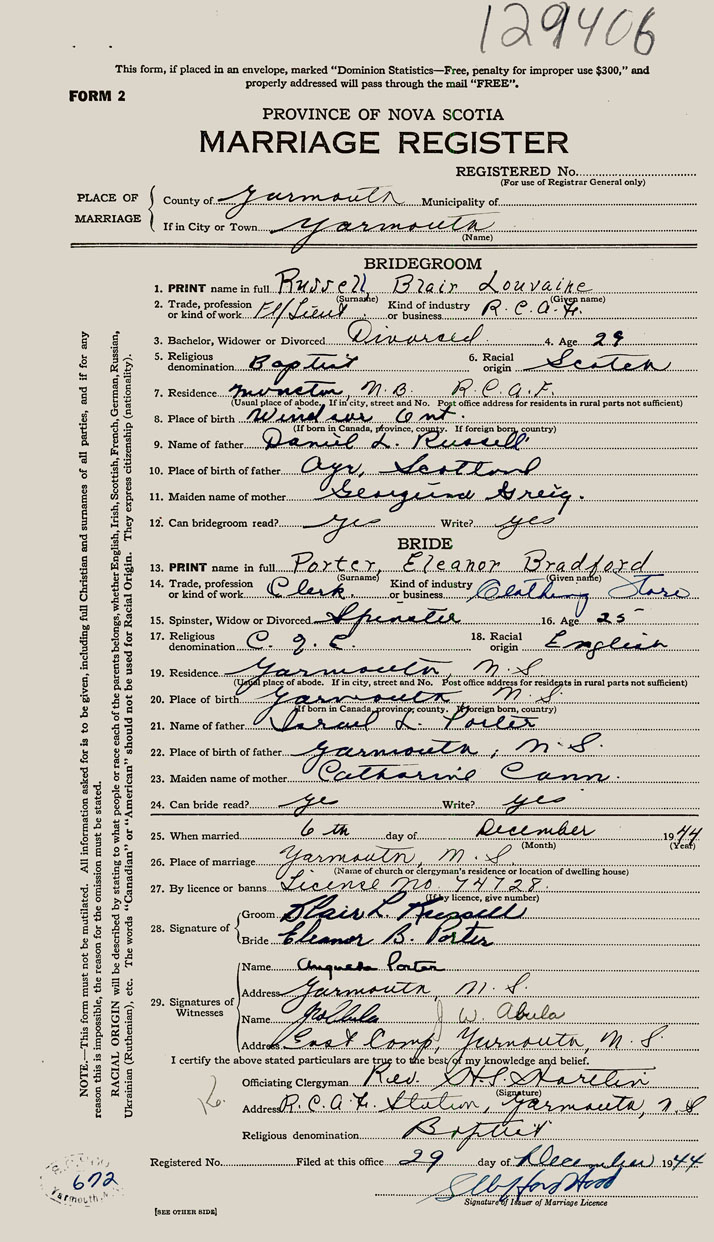 129406
This form, if placed in an envelope, marked “Dominion Statistics—Free, penalty for improper use $300,” and
properly addressed will pass through the mail “FREE”.
FORM 2
PROVINCE OF NOVA SCOTIA
MARRIAGE REGISTER
REGISTERED No.
(For use of Registrar General only)
PLACE OF MARRIAGE
County of Yarmouth Municipality of
If in City or Town Yarmouth
(Name)
BRIDEGROOM
1. PRINT name in full Russell, Blair Louvaine
(Surname) (Given name)
2. Trade, profession or kind of work Fl/Lieut. Kind of industry or business R.C.A.F.
3. Bachelor, Widower or Divorced Divorced 4. Age 29
5. Religious denomination Baptist 6. Racial origin Scotch
7. Residence Moncton N.B. R.C.A.F.
(Usual place of abode. If in city, street and No. Post office address for residents in rural parts not sufficient)
8. Place of birth Windsor Ont.
(If born in Canada, province, county. If foreign born, country)
9. Name of father Daniel L. Russell
10. Place of birth of father Ayr, Scotland
11. Maiden name of mother Georgiend Greig.
12. Can bridegroom read? yes Write? yes
BRIDE
13. PRINT name in full Porter, Eleanor Bradford
(Surname) (Given name)
14. Trade, profession or kind of work Clerk. Kind of industry or business Clothing Store
15. Spinster, Widow or Divorced Spinster 16. Age 25
17. Religious denomination C. of E. 18. Racial origin English
19. Residence Yarmouth N.S
(Usual place of abode. If in city, street and No. Post office address for residents in rural parts not sufficient)
20. Place of birth Yarmouth N.S.
(If born in Canada, province, county. If foreign born, country)
21. Name of father Israel L. Porter
22. Place of birth of father Yarmouth, N.S.
23. Maiden name of mother Catharine Cann.
24. Can bride read? yes Write? yes
25. When married 6th day of December 1944
(Month) (Year)
26. Place of marriage Yarmouth, N.S.
(Name of church or clergyman's residence or location of dwelling house)
27. By licence or banns License No. 74728.
(If by licence, give number)
28. Signature of
Groom Blair L. Russell
Bride Eleanor B. Porter
29. Signatures of Witnesses
Name Porter
Address Yarmouth, N.S.
Name W. Abula
Address East Camp, Yarmouth, N.S.
I certify the above stated particulars are true to the best of my knowledge and belief.
Officiating Clergyman Rev.
(Signature)
Address R.C.A.F. Station, Yarmouth, N.S
Religious denomination Baptist
Registered No. Filed at this office 29 day of December 1944
Signature of Issuer of Marriage Licence
[SEE OTHER SIDE]
672
Yarmouth, N.S.
NOTE.—This form must not be mutilated. All information asked for is to be given, including full Christian and surnames of all parties, and if for any
reason this is impossible, the reason for the omission must be stated.
RACIAL ORIGIN will be described by stating to what people or race each of the parents belongs, whether English, Irish, Scottish, French, German, Russian,
Ukrainian (Ruthenian), etc. The words “Canadian” or “American” should not be used for Racial Origin. They express citizenship (nationality).